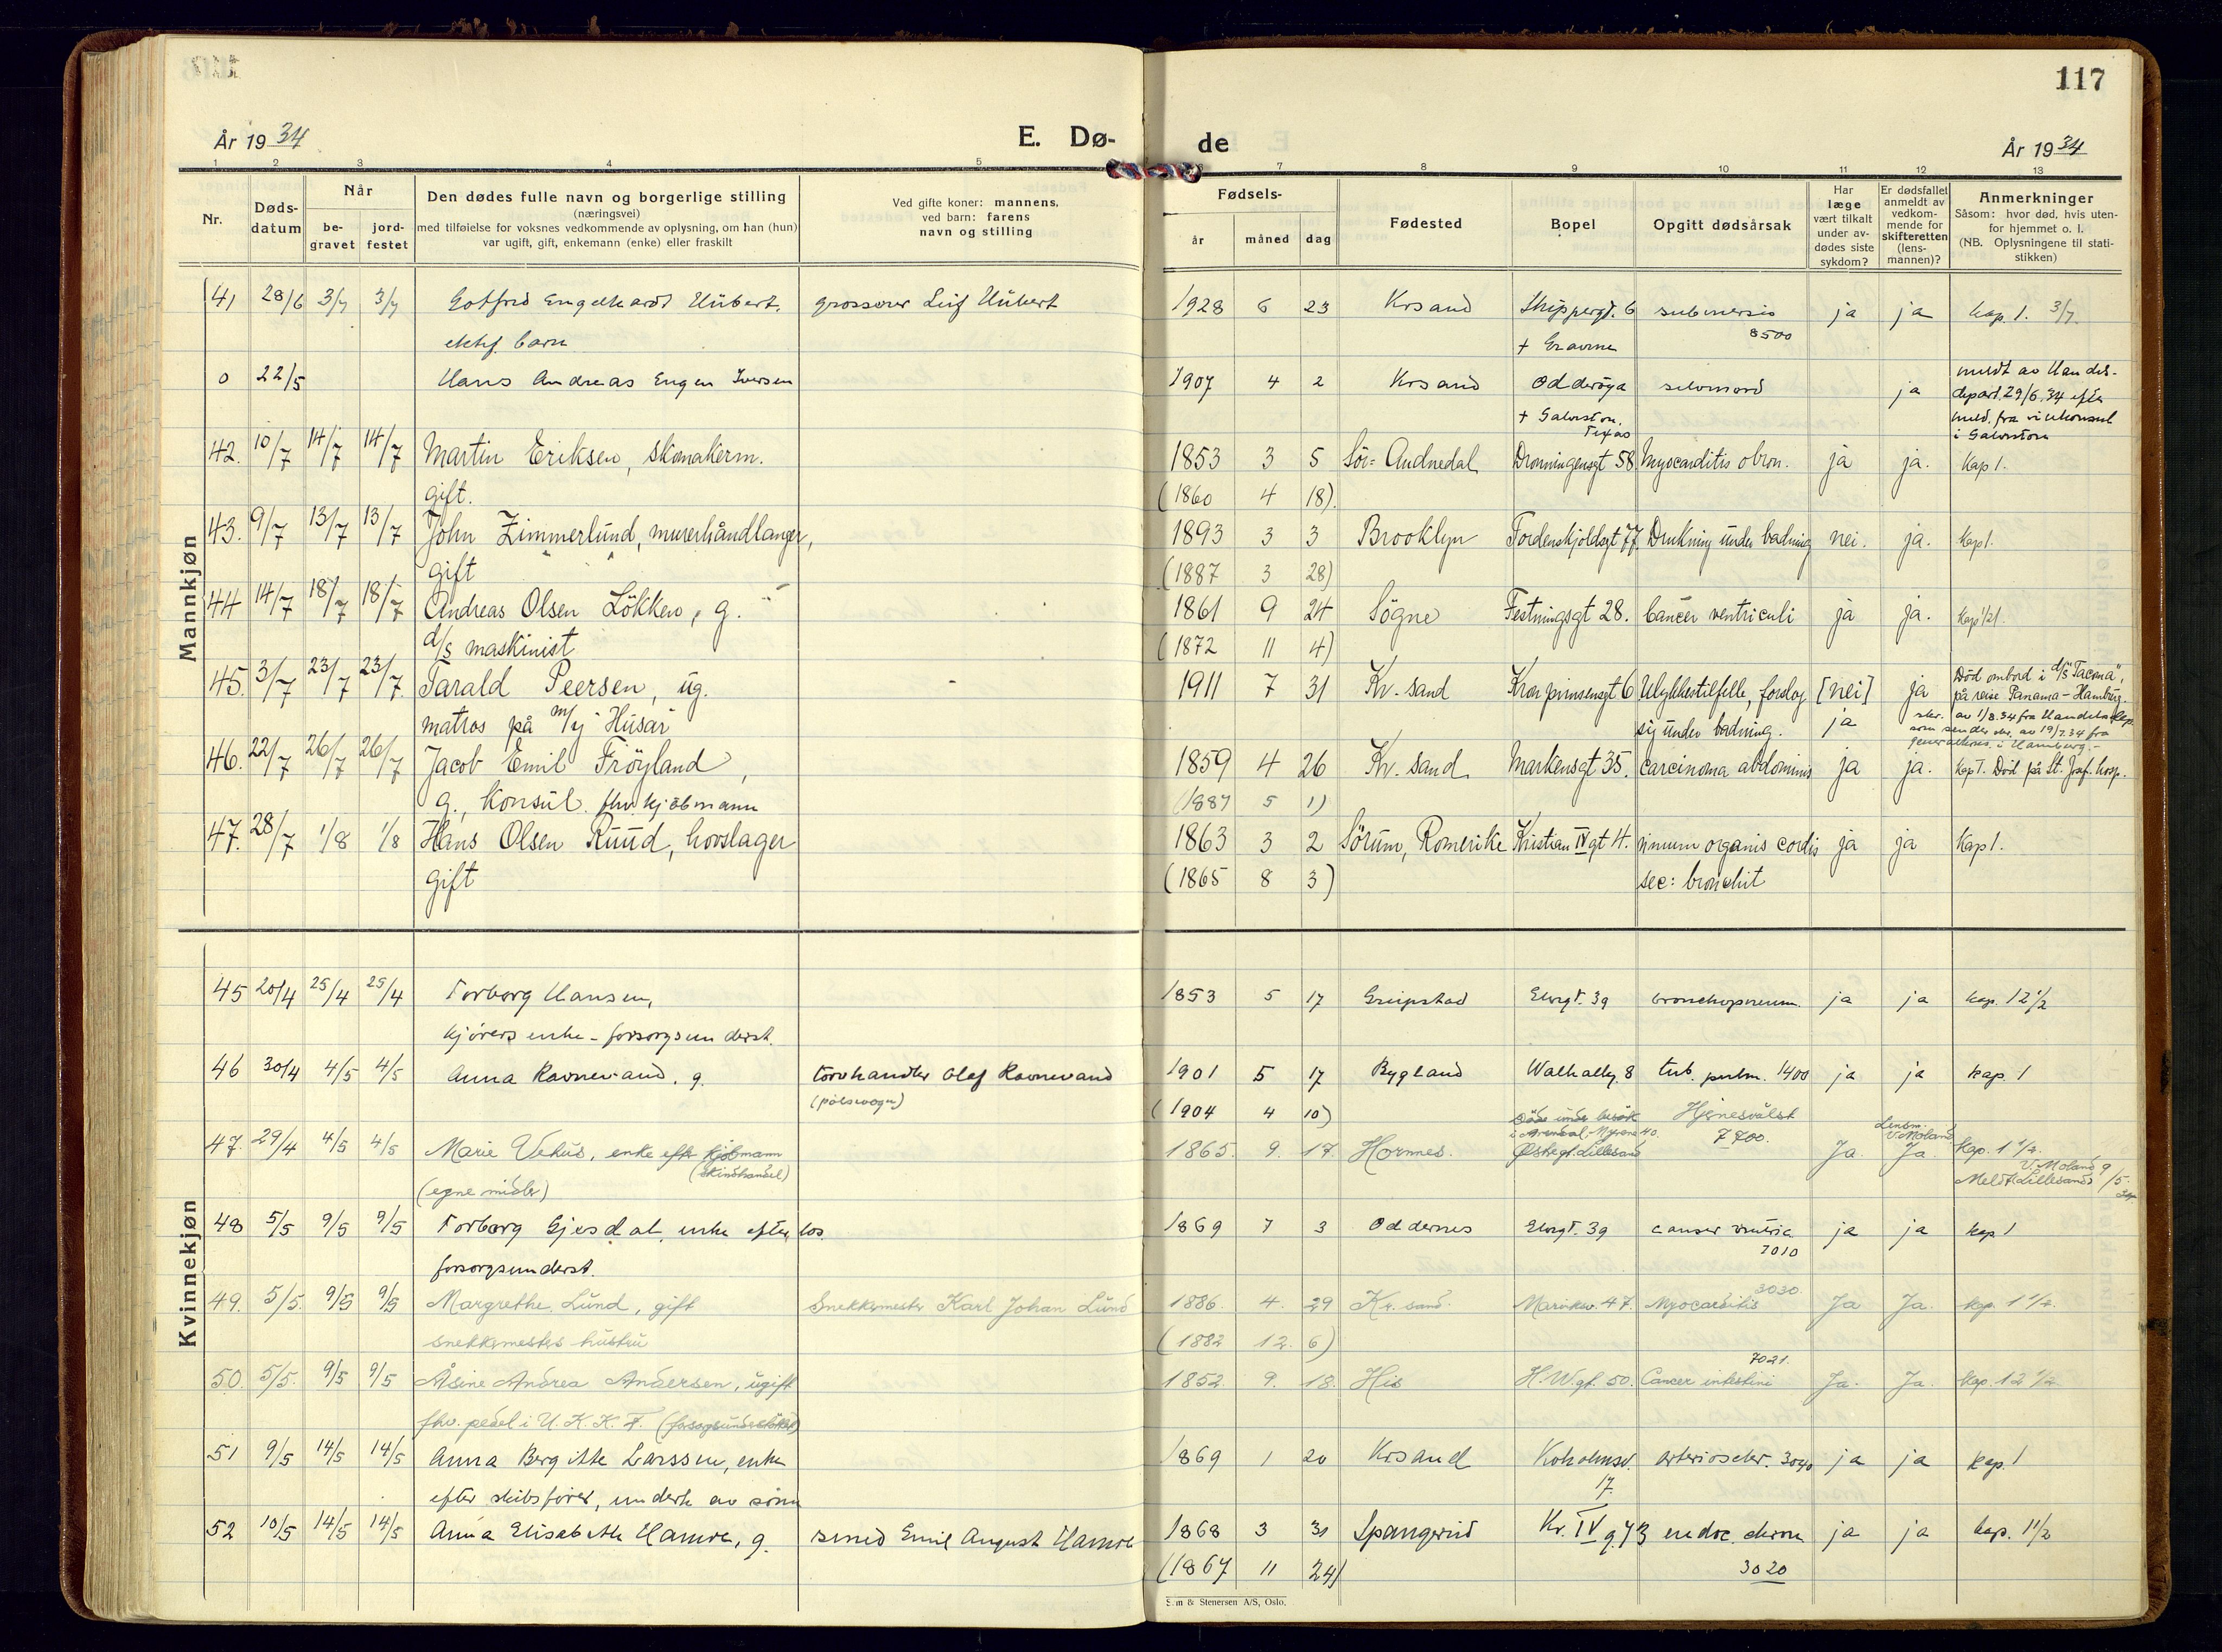 117
År 1934
E. Dø-
de
År 1934
1 2 3 4 5 7 8 9 10 11 12 13
Nr.
Døds-
datum
Når
be-
gravet
jord-
festet
Den dødes fulle navn og borgerlige stilling
(næringsvei)
med tilføielse for voksnes vedkommende av oplysning, om han (hun)
var ugift, gift, enkemann (enke) eller fraskilt
Ved gifte koner: mannens,
ved barn: farens
navn og stilling
Fødsels-
år måned dag
Fødested
Bopel
Opgitt dødsårsak
Har
læge
vært tilkalt
under av-
dødes siste
sykdom?
Er dødsfallet
anmeldt av
vedkom-
mende for
skifteretten
(lens-
mannen)?
Anmerkninger
Såsom: hvor død, hvis uten-
for hjemmet o. l.
(NB. Oplysningene til stati-
stikken)
Mannkjøn
41 28/6 3/7 3/7 Gotfred Engelhardt Hubert, grosserer Leif Hubert 1928 6 23 Krsand Skippergt. 6 submersio ja ja kap. 1. 3/7.
ektef. barn + Gravene 8500
0 22/5 Hans Andreas Engen Iversen 1907 4 2 Krsand Odderøya selvmord ja meldt av Handels-
depart. 29/6.34 efter
+ Galveston, Texas meld. fra vicekonsul
i Galveston
42. 10/7 14/7 14/7 Martin Eriksen, skomakerm. 1853 3 5 Sör-Audnedal Dronningensgt 58 Myocarditis chron. ja ja. Kap 1.
gift. (1860 4 18)
43. 9/7 13/7 13/7 John Zimmerlund, murerhåndlanger, 1893 3 3 Brooklyn Tordenskjoldsgt 77 Drukning under badning nei. ja. Kap 1.
gift (1887 3 28)
44 14/7 18/7 18/7 Andreas Olsen Lökken, g. 1861 9 24 Sögne Festningsgt 28. Cancer ventriculi ja ja. Kap 1/2 1.
d/s maskinist (1872 11 4)
45. 3/7 23/7 23/7 Tarald Peersen, ug. 1911 7 31 Kr. sand Kronprinsensgt 6 Ulykkestilfelle, forslog [nei] ja Död ombord i d/s "Tacoma",
på reise Panama - Hamburg.
matros på m/y "Husar" sig under badning. ja skr. av 1/8.34 fra Handelsdep.
som sender skr. av 19/7.34 fra
generalkons. i Hamburg.-
46. 22/7 26/7 26/7 Jacob Emil Fröyland, 1859 4 26 Kr. sand Markensgt 35. Carcinoma abdominis ja ja. Kap 1. Död på St. Josf. hosp.
g., konsul. fhv. kjöbmann (1887 5 1)
47. 28/7 1/8 1/8 Hans Olsen Ruud, hovslager 1863 3 2 Sörum, Romerike Kristian IV gt 4. organis cordis ja ja Kap 1.
gift (1865 8 3) sec: bronchit
Kvinnekjøn
45 20/4 25/4 25/4 Torborg Hansen, 1853 5 17 Grimstad Elvegt. 39 bronchopneum. ja ja kap. 1 2 1/2
kjörers enke - forsorgsunderst.
46 30/4 4/5 4/5 Anna Ravnevand, g. torvhandler Olaf Ravnevand 1901 5 17 Bygland Walhallg. 8 tub. pulm. 1400 ja ja kap. 1
(pölsevogn) (1904 4 10)
47. 29/4 4/5 4/5 Marie Vehus, enke efter kjöbmann 1865. 9. 17. Hornnes. Döde under besök
i Arendal, Myrene 40.
Østregt. Lillesand Hjernesvulst
7700. Ja. Lensm.
V. Moland
Ja. Kap. 1 1/2.
(skindhandel)
(egne midler) V. Moland 9
Meldt Lillesand /5.
48 5/5 9/5 9/5 Torborg Gjesdal, enke efter los. 1869 7 3 Oddernes Elvegt. 39 cancer ventric. ja ja kap. 1
forsorgsunderst. 7010
49. 5/5. 9/5 9/5 Margrethe Lund, gift Snekkermester Karl Johan Lund 1886. 4. 29 Kr. sand. Marviksv. 47. Myocarditis 3030 Ja Ja. kap. 1 1/2.
snekkermesters hustru (1882 12. 6)
50. 5/5. 9/5 9/5 Åsine Andrea Andersen, ugift 1852. 9. 18. His H.W.gt. 50. Cancer intestini 7021. Ja. Ja. Kap. 1 2 1/2
fhv. pedel i U.K.K.F. (forsorgsunderstöttet)
51 9/5 14/5 14/5 Anna Bergitte Larssen, enke 1869 1 20 Krsand Koholmsv. 17. arterioscler. 3040 ja ja kap. 1
efter skibsförer, underh. av sönn
52 10/5 14/5 14/5 Anna Elisabeth Hamre, g. smed Emil August Hamre 1868 3 31 Spangereid Kr. IV g. 73 endoc. chron ja ja kap. 1 1/2
(1867 11 24) 3020
& Stenersen A/S, Oslo.